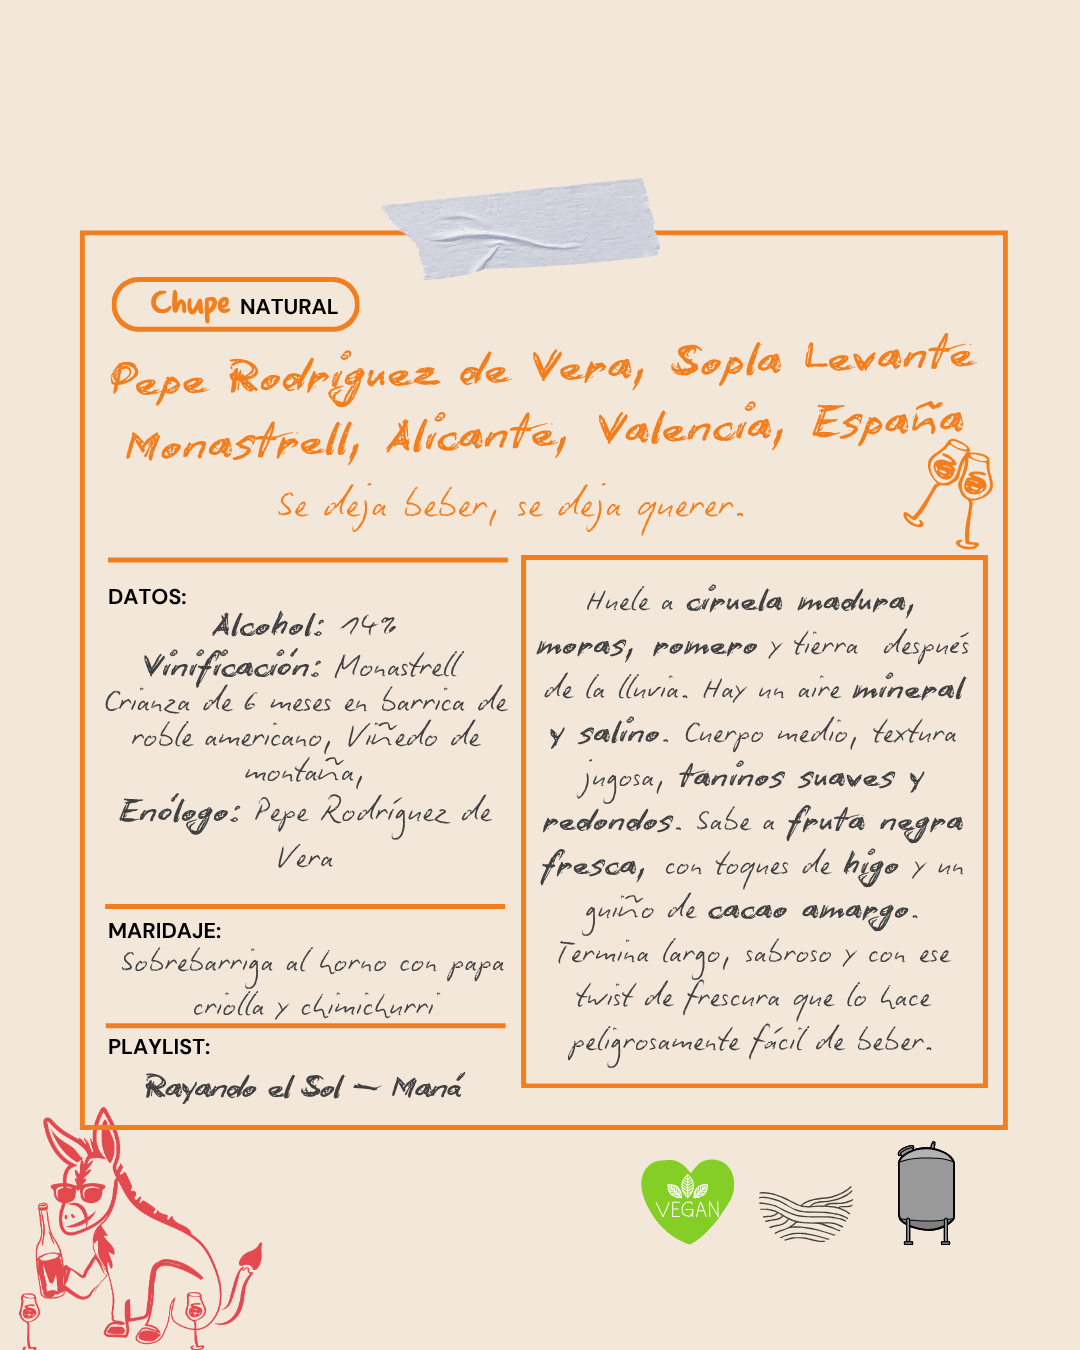 Chupe NATURAL
Pepe Rodríguez de Vera, Sopla Levante
Monastrell, Alicante, Valencia, España
Se deja beber, se deja querer.
DATOS:
Alcohol: 14%
Vinificación: Monastrell
Crianza de 6 meses en barrica de
roble americano, Viñedo de
montaña,
Enólogo: Pepe Rodríguez de
Vera
MARIDAJE:
Sobrebarriga al horno con papa
criolla y chimichurri
PLAYLIST:
Rayando el Sol – Maná
Huele a ciruela madura,
moras, romero y tierra después
de la lluvia. Hay un aire mineral
y salino. Cuerpo medio, textura
jugosa, taninos suaves y
redondos. Sabe a fruta negra
fresca, con toques de higo y un
guiño de cacao amargo.
Termina largo, sabroso y con ese
twist de frescura que lo hace
peligrosamente fácil de beber.
VEGAN